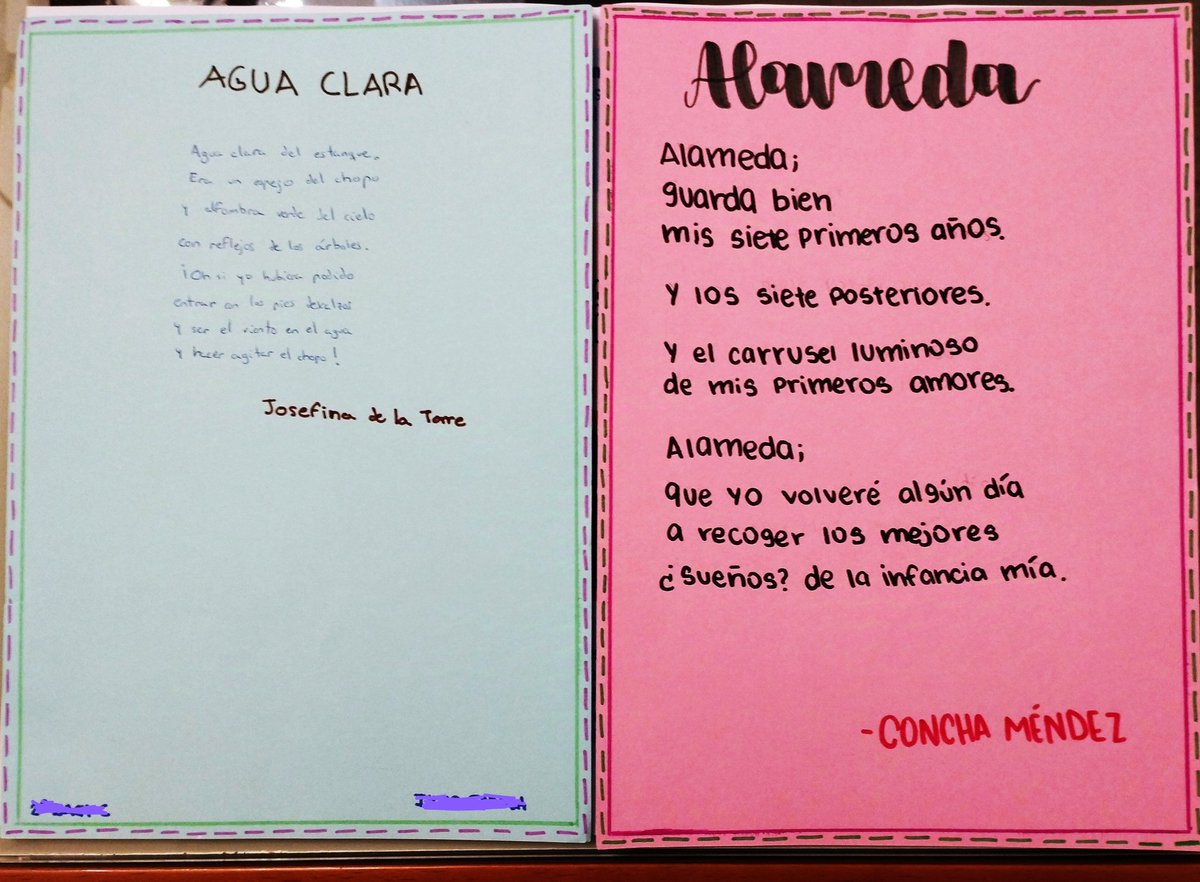 AGUA CLARA
Agua clara del estanque.
Era un espejo del chopo
y alfombra verde del cielo
con reflejos de los árboles.
¡Oh si yo hubiera podido
entrar con los pies descalzos
y ser el viento en el agua
y hacer agitar el chopo!
Josefina de la Torre
Alameda
Alameda;
guarda bien
mis siete primeros años.
Y los siete posteriores.
Y el carrusel luminoso
de mis primeros amores.
Alameda;
que yo volveré algún día
a recoger los mejores
¿sueños? de la infancia mía.
-CONCHA MÉNDEZ